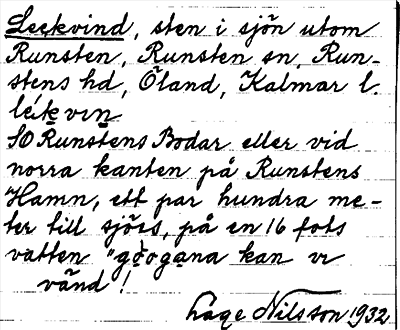 Leckvind, sten i sjön utom
Runsten, Runsten sn, Run-
stens hd, Öland, Kalmar l.
lékvin
SO Runstens Bodar eller vid
norra kanten på Runstens
Hamn, ett par hundra me-
ter till sjös, på en 16 fots
vatten "gŏogana kan vi
vänd"!
Lage Nilsson 1932